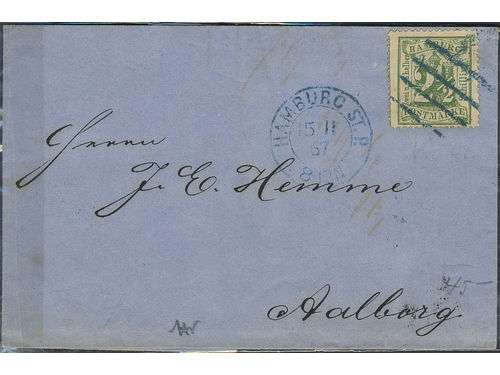 HAMBURG
2½
POSTMARKE
HAMBURG St.P.
15 11
67
Herrn
J. E. Hemme
Aalborg
45-